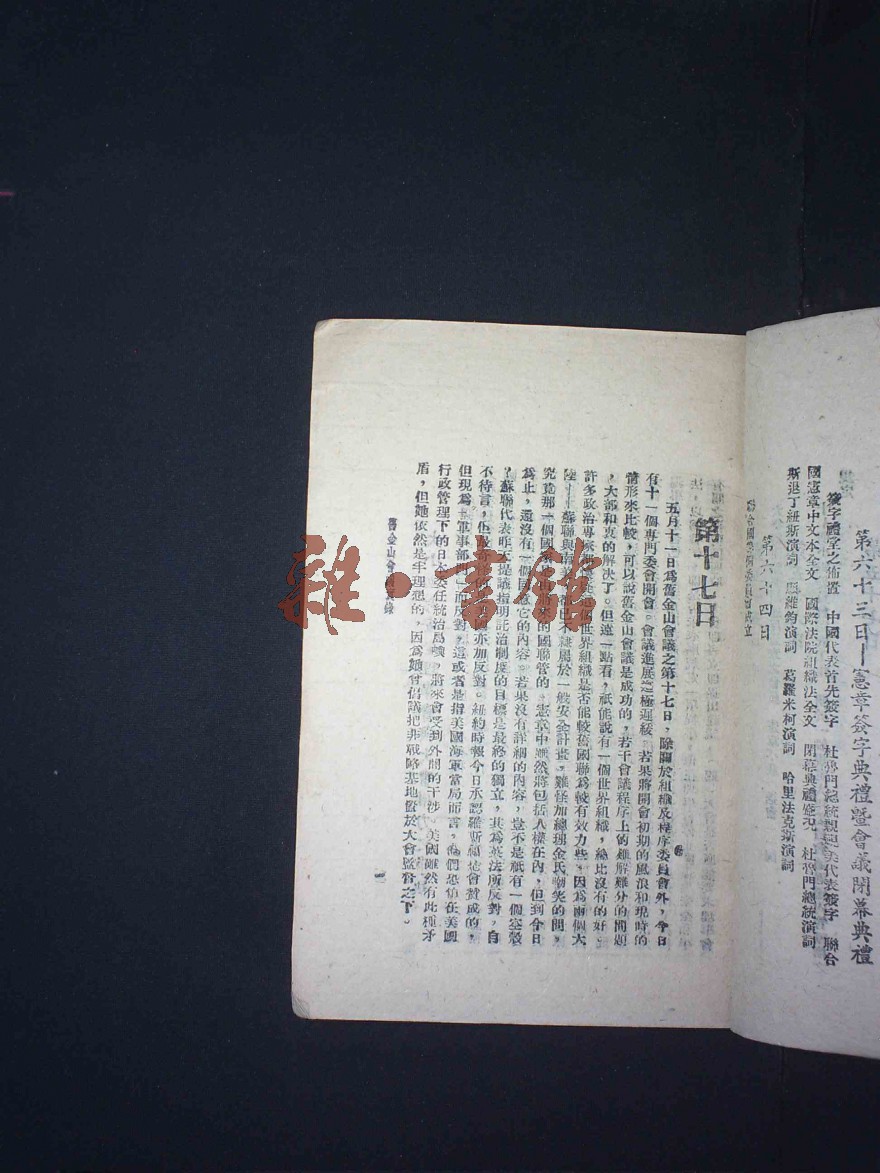 第六十三日—憲章簽字典禮暨會議閉幕典禮
簽字禮堂之佈置 中國代表首先簽字 杜魯門總統親蒞美代表簽字 聯合
國憲章中文本全文 國際法院組織法全文 閉幕典禮盛況 杜魯門總統演詞
斯退丁紐斯演詞 顧維鈞演詞 葛羅米柯演詞 哈里法克斯演詞
第六十四日
第十七日
五月十一日爲舊金山會議之第十七日，除關於組織及程序委員會外，今日
有十一個專門委會開會。會議進展之極遲緩，若果將開會初期的風浪和現時的
情形來比較，可以說舊金山會議是成功的，若干會議程序上的難解難分的問題
，大部和衷的解決了。但進一點看，祇能說有一個世界組織，總比沒有的好。
許多政治專家 這個世界組織是否能較舊國聯爲較有效力些，因爲兩個大
陸——蘇聯與南 不隸屬於一般安全計畫，難怪加總理金氏嘲笑的問，
究竟那一個國 的國聯管的。憲章中雖然將包括人權在內，但到今日
爲止，還沒有一個同意它的內容。若果沒有詳細的內容，豈不是祇有一個空殼
？蘇聯代表昨天提議指明託治制度的目標是最終的獨立，其爲英法所反對，自
不待言，但 亦加反對。紐約時報今日承認羅斯福他會贊成的，
但現爲「軍事部門」而反對，這或者是指美國海軍當局而言，他們恐怕在美國
行政管理下的日本委任統治島嶼，將來會受到外間的干涉。美國雖然有此種矛
盾，但她依然是半理想的，因爲她曾倡議把非戰略基地置於大會監督之下。
舊金山會 錄
一
雜·書館